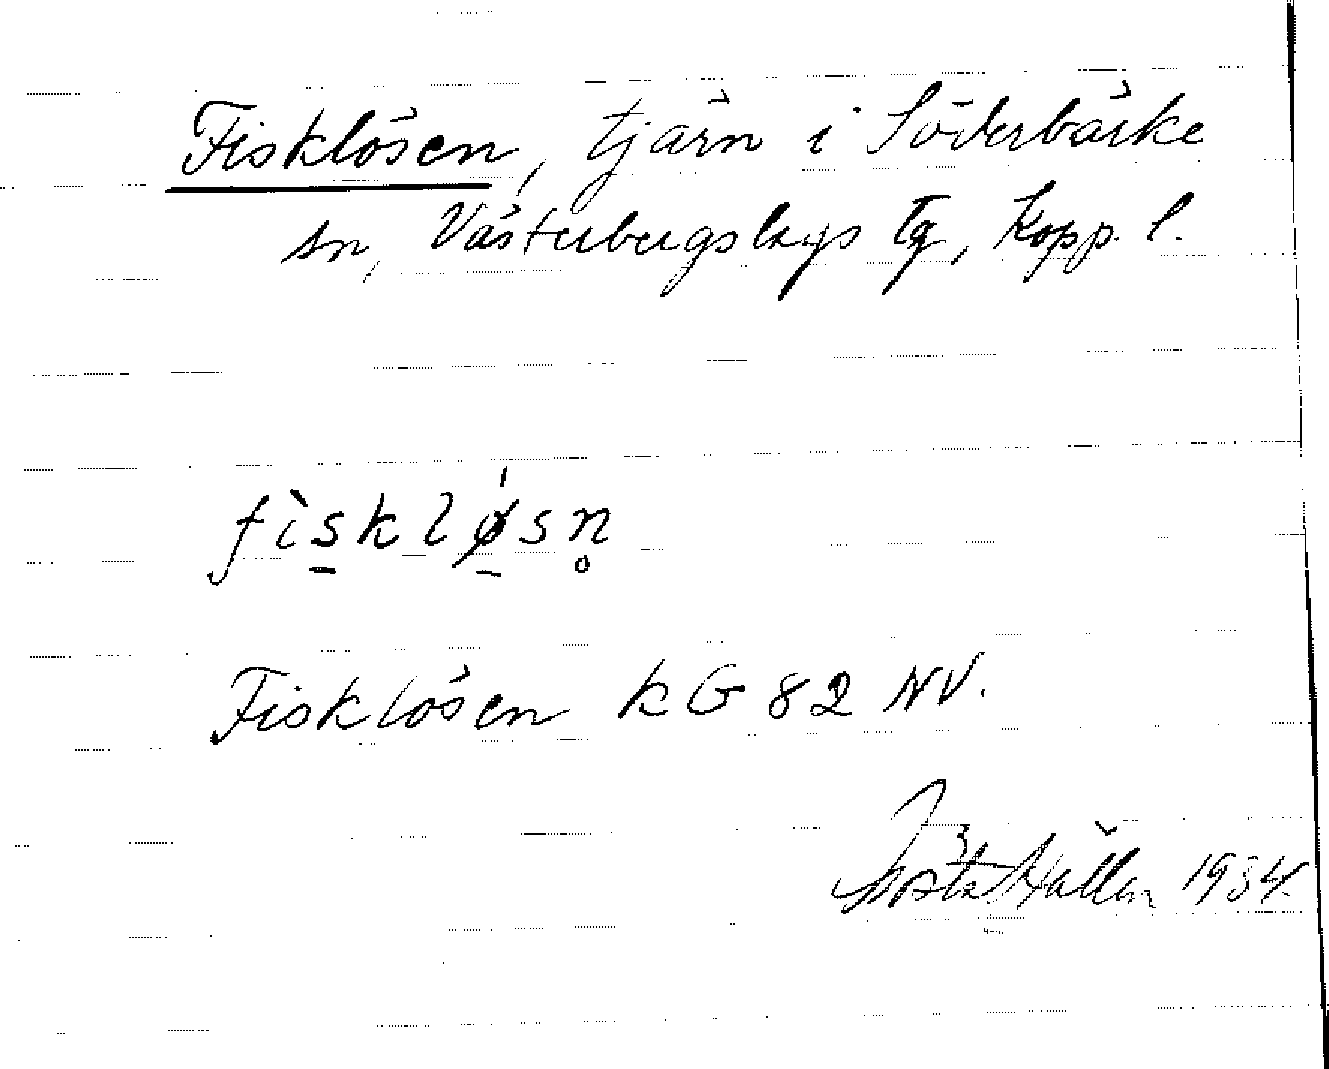 Fisklösen, tjärn i Söderbärke
sn, Västerbergslags tg, Kopp. l.
fìsklǿsn̥
Fisklösen kG 82 NV.
Gösta Hallén 1934.